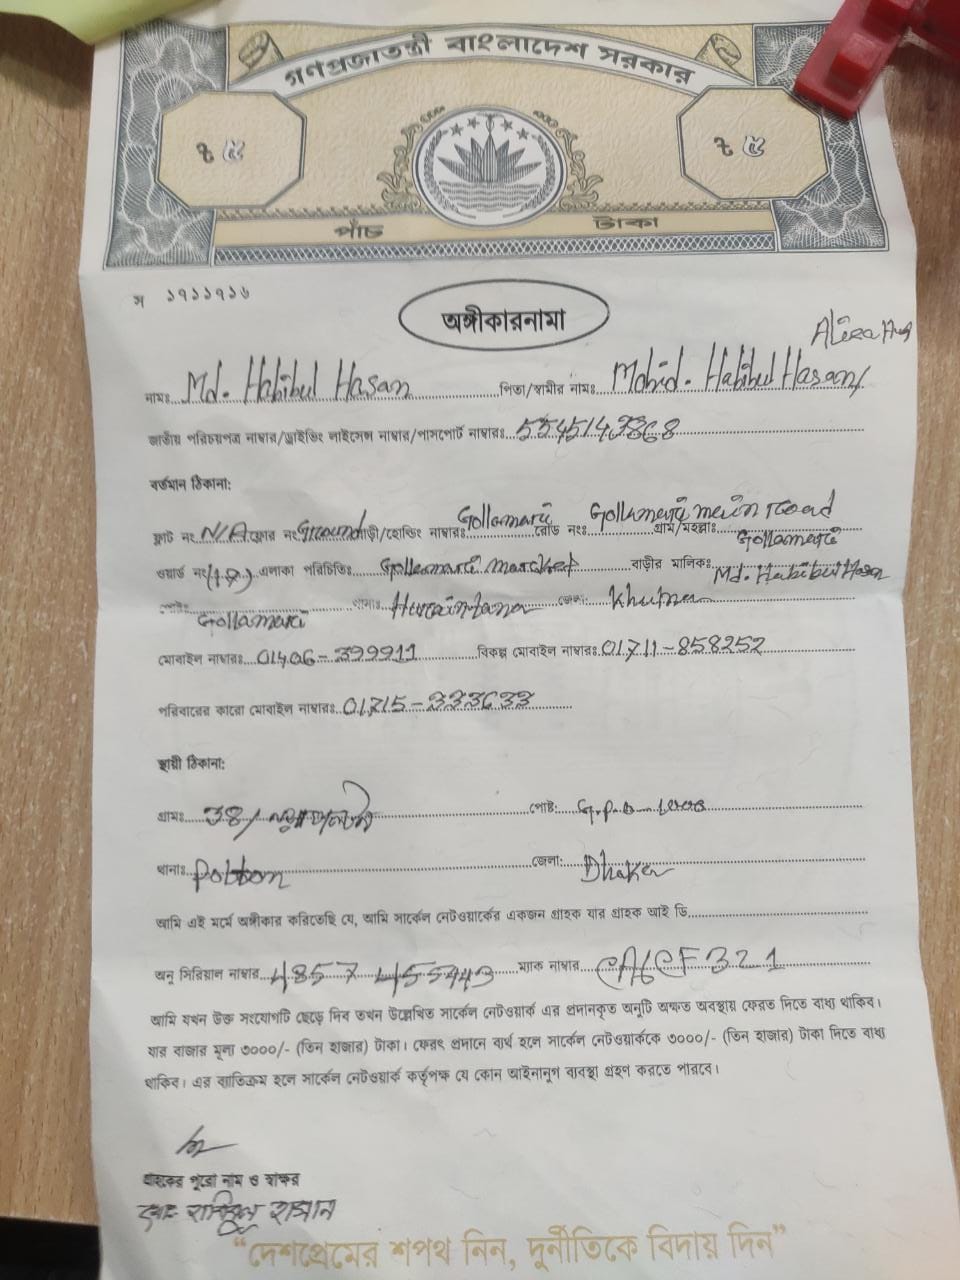 গণপ্রজাতন্ত্রী বাংলাদেশ সরকার
৳ ৫ ৳ ৫
পাঁচ টাকা
স ১৭১১৭১৬
অঙ্গীকারনামা
নামঃ Md. Habibul Hasan পিতা/স্বামীর নামঃ Mohid. Habibul Hasan
জাতীয় পরিচয়পত্র নাম্বার/ড্রাইভিং লাইসেন্স নাম্বার/পাসপোর্ট নাম্বারঃ
বর্তমান ঠিকানা:
ফ্লাট নং N/A ফ্লোর নং Ground বাড়ী/হোল্ডিং নাম্বারঃ Gollamari রোড নং: Gollamari main road গ্রাম/মহল্লাঃ Gollamari
ওয়ার্ড নং এলাকা পরিচিতিঃ Gollamari market বাড়ীর মালিকঃ Md. Habibul Hasan
Gollamari থানাঃ জেলা: Khulna
মোবাইল নাম্বারঃ 01406-399911 বিকল্প মোবাইল নাম্বারঃ 01711-858252
পরিবারের কারো মোবাইল নাম্বারঃ 01715-333633
স্থায়ী ঠিকানা:
গ্রামঃ 38/ পোষ্ট: G.P.O
থানাঃ Polton জেলা: Dhaka
আমি এই মর্মে অঙ্গীকার করিতেছি যে, আমি সার্কেল নেটওয়ার্কের একজন গ্রাহক যার গ্রাহক আই ডি
অনু সিরিয়াল নাম্বার 4857 455443 ম্যাক নাম্বার
আমি যখন উক্ত সংযোগটি ছেড়ে দিব তখন উল্লেখিত সার্কেল নেটওয়ার্ক এর প্রদানকৃত অনুটি অক্ষত অবস্থায় ফেরত দিতে বাধ্য থাকিব।
যার বাজার মূল্য ৩০০০/- (তিন হাজার) টাকা। ফেরৎ প্রদানে ব্যর্থ হলে সার্কেল নেটওয়ার্ককে ৩০০০/- (তিন হাজার) টাকা দিতে বাধ্য
থাকিব। এর ব্যতিক্রম হলে সার্কেল নেটওয়ার্ক কর্তৃপক্ষ যে কোন আইনানুগ ব্যবস্থা গ্রহণ করতে পারবে।
গ্রাহকের পুরো নাম ও স্বাক্ষর
হাসান
“দেশপ্রেমের শপথ নিন, দুর্নীতিকে বিদায় দিন”